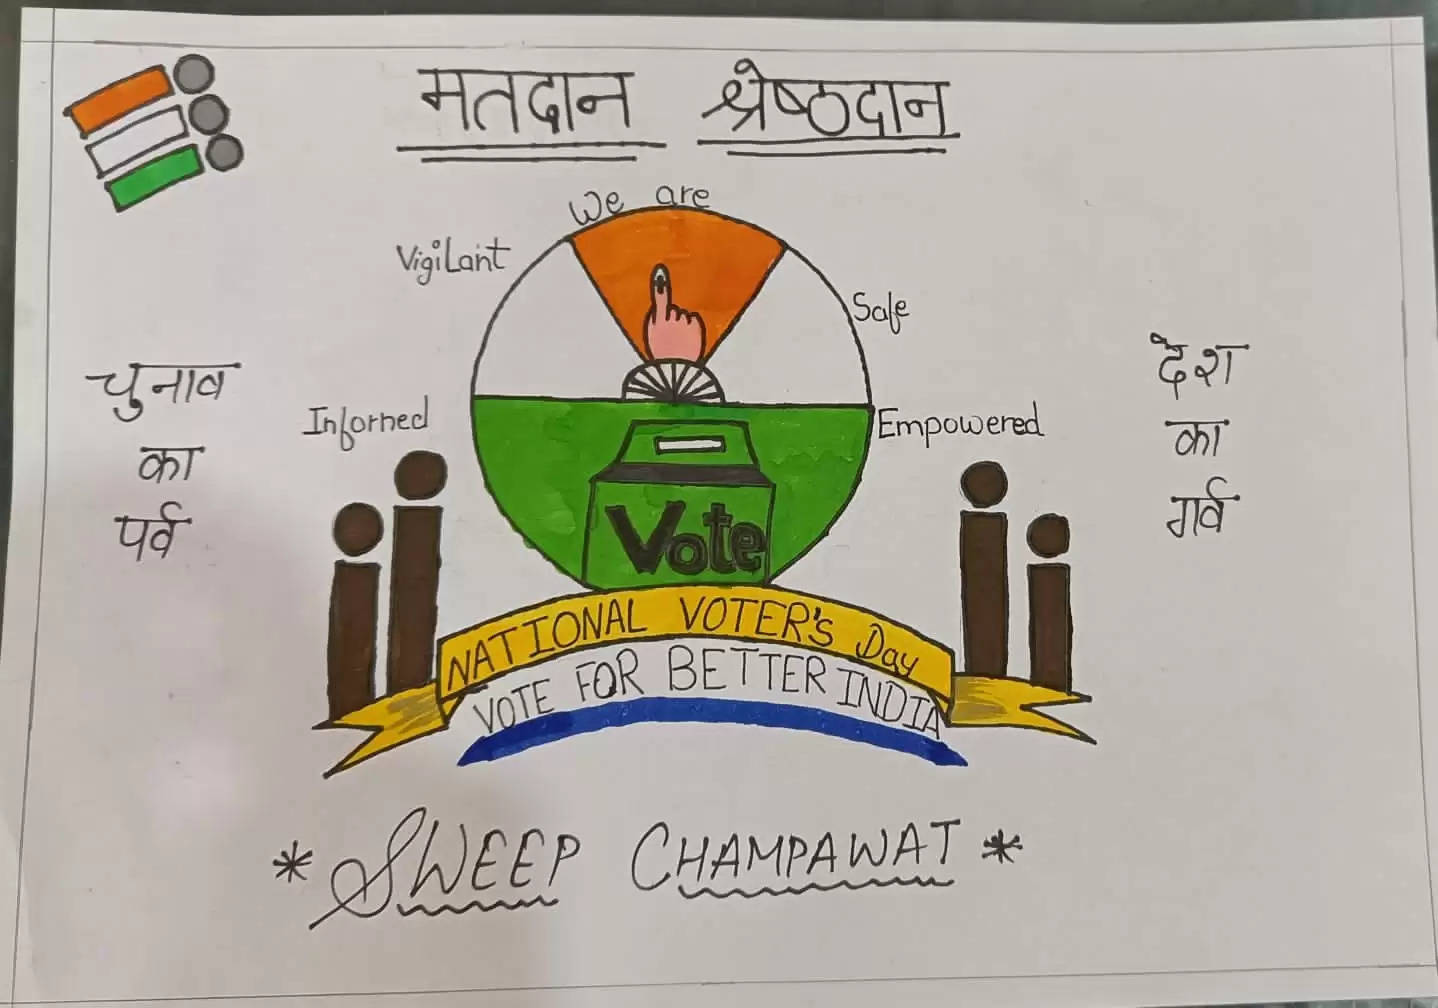 मतदान श्रेष्ठदान
We are
Vigilant
Safe
Informed
Empowered
चुनाव
का
पर्व
देश
का
गर्व
Vote
NATIONAL VOTER'S Day
VOTE FOR BETTER INDIA
* SWEEP CHAMPAWAT *